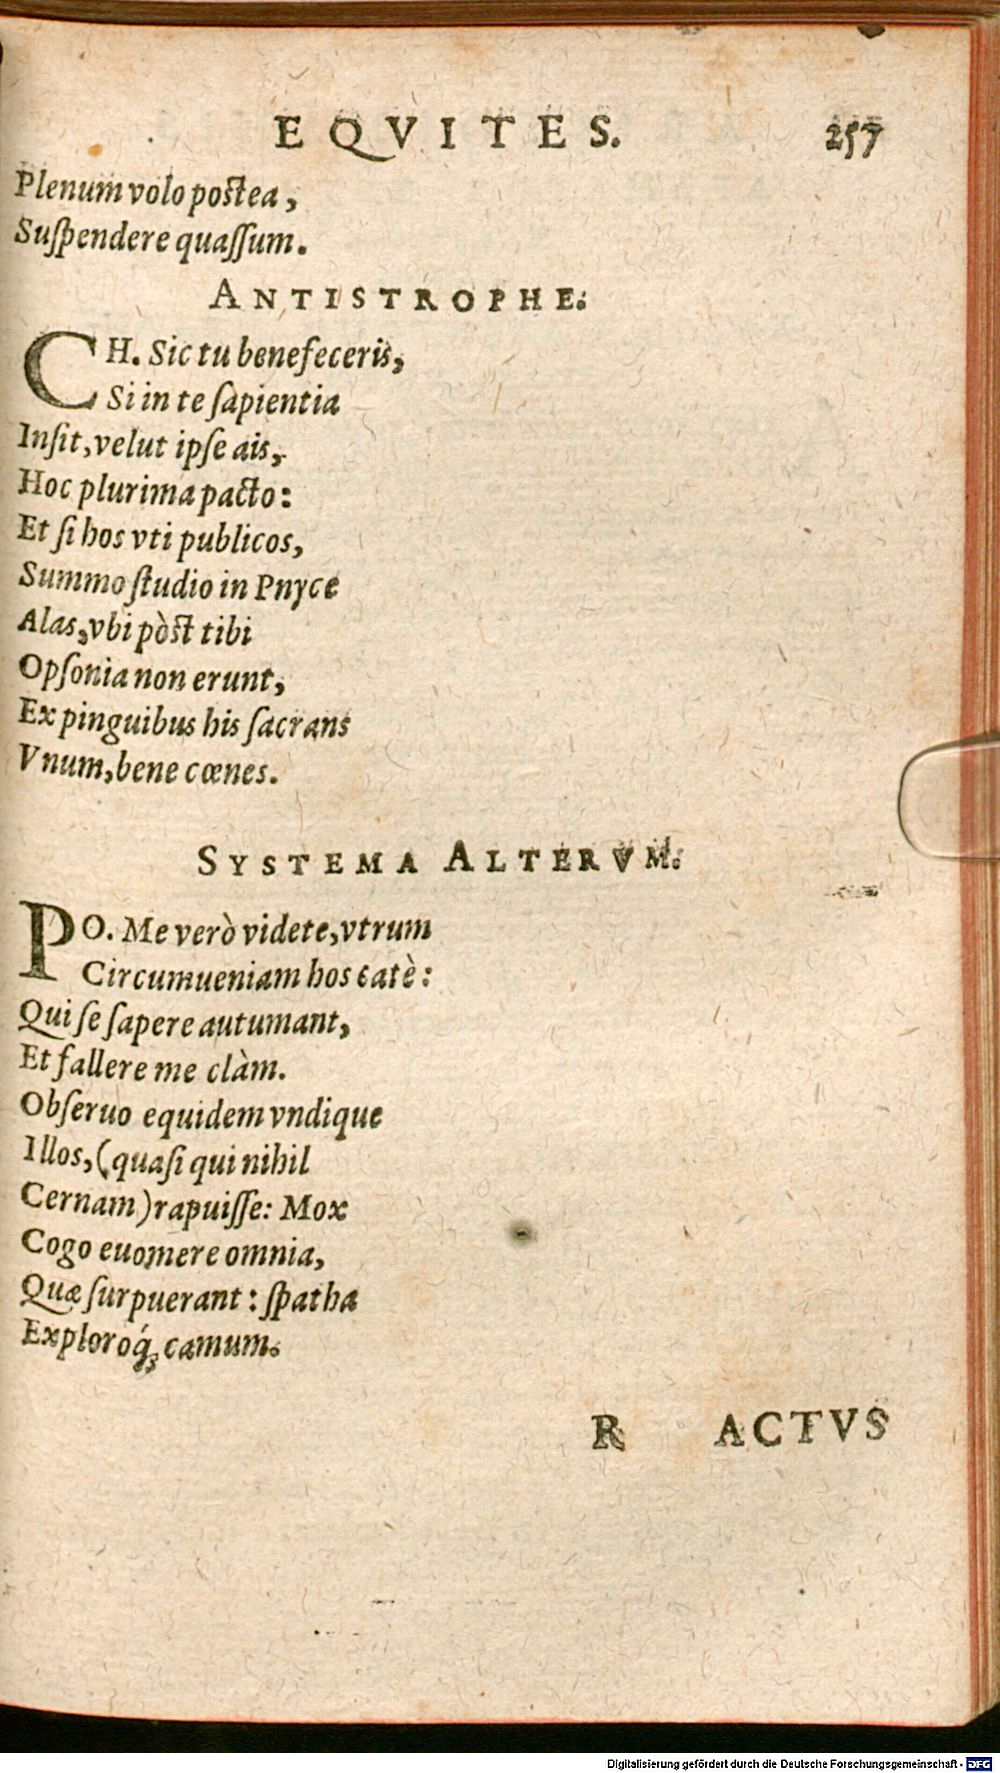 EQVITES. 257
Plenum volo postea,
Suſpendere quaſſum.
ANTISTROPHE.
CH. Sic tu benefeceris,
Si in te ſapientia
Inſit, velut ipſe ais,
Hoc plurima pacto:
Et ſi hos vti publicos,
Summo ſtudio in Pnyce
Alas, vbi pòst tibi
Opſonia non erunt,
Ex pinguibus his ſacrans
Vnum, bene cœnes.
SYSTEMA ALTERVM.
PO. Me verò videte, vtrum
Circumueniam hos catè:
Qui ſe ſapere autumant,
Et fallere me clàm.
Obſeruo equidem vndique
Illos, (quaſi qui nihil
Cernam) rapuiſſe: Mox
Cogo euomere omnia,
Quæ ſurpuerant: ſpatha
Exploroq́; camum.
R ACTVS
Digitalisierung gefördert durch die Deutsche Forschungsgemeinschaft - DFG